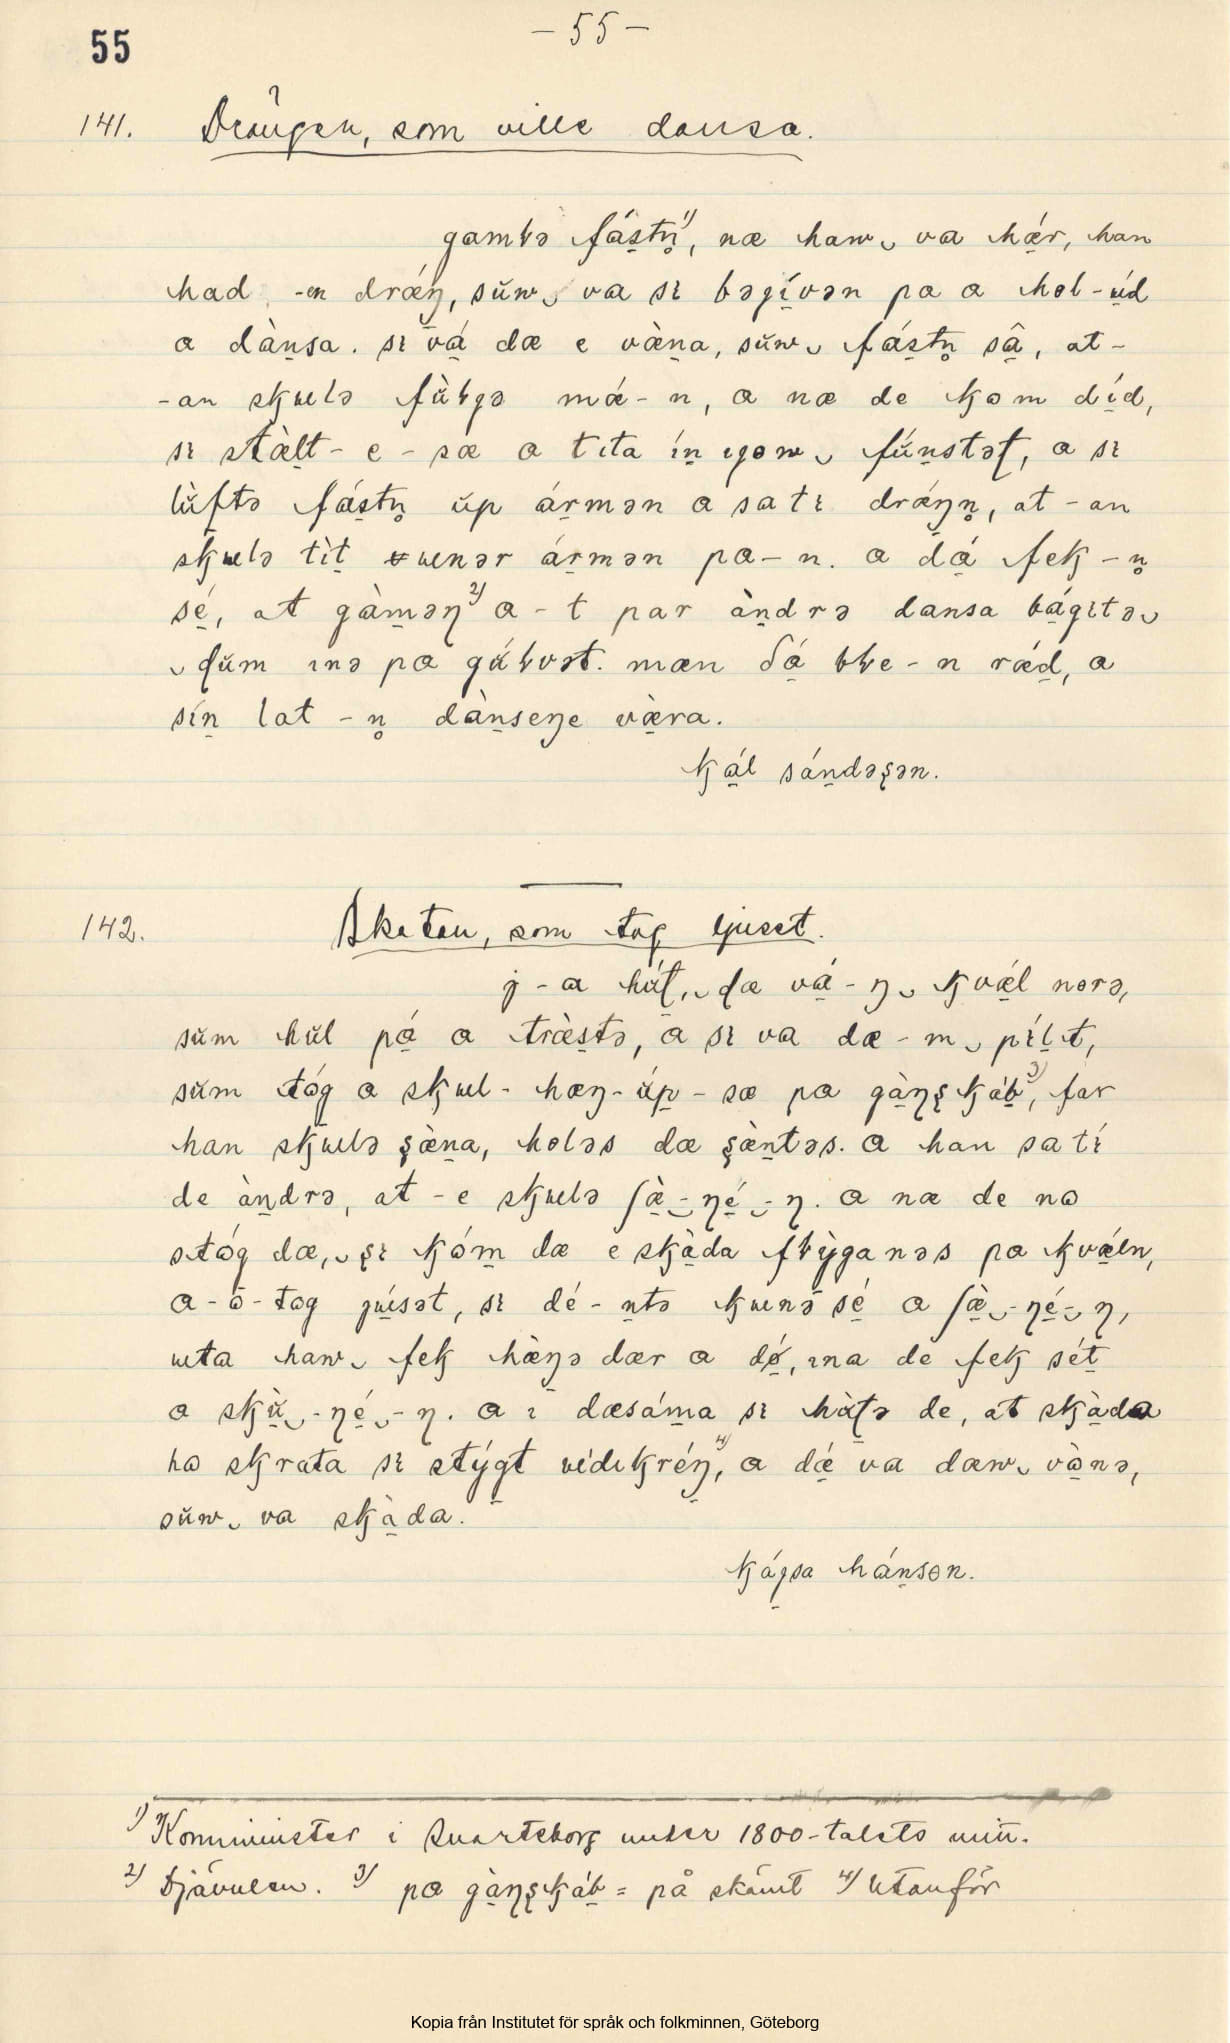 55
– 55 –
141. Drängen, som ville dansa.
gambə fástn̥ 1), næ haw‿ va hǽr, han
had -en drǽŋ, sŭw‿ va sı bəgívən pa a hol-úd
a dànsa. sı vá dæ e vǽna, sŭw‿ fástn̥ sâ, at-
-an skɯlə fùlgə mǽ-n, a næ de kom díd,
sı stæ̀lt-e-sæ a tıta ín ıgɵw‿ fúnstəɽ, a sı
lùftə fástn̥ ŭp ármən a sa tı drǽŋn̥, at-an
skɯlə tìt ɯnər ármən pa-n. a dá fek-n̥
sé, at gàməŋ 2) a-t par àndrə dansa bágıtə‿
‿ɖŭm ınə pa gúlvət. mæn dá ble-n rǽd, a
sín lat-n̥ dànseŋe væ̀ra.
kál sándəşən.
142. Skatan, som tog ljuset.
j-a húɽ,‿ɖæ vá-ŋ‿ kvǽl nɵrə,
sŭm hŭl pá a træ̀stə, a sı va dæ-m‿ píl̥t,
sŭm tóg a skɯl-hæŋ-úp-sæ pa gàŋşkáb 3), far
han skɯlə şæ̀na, holəs dæ şæ̀ntəs. a han sa tí
de àndrə, at-e skɯlə ʃæ̀‿-ŋé‿-ŋ. a næ de nɷ
stóg dæ,‿şı kóm dæ e skàda flỳganəs pa kvǽln,
a-ɷ-tɷg jɯ́sət, sı dé-ntə kɯnə sé a ʃæ̀‿-ŋé‿ŋ,
ɯta haw‿ fek hæ̀ŋə dær a dǿ, ına de fek sét
a skù‿-ŋé‿-ŋ. a ı dæsáma sı hùɽə de, at skàda
hɷ skrata sı stýgt vıdıkréŋ 4), a dǽ va dæw‿ vɷ̀nə,
sŭw‿ va skàda.
kájsa hánsɵn.
1) Komminister i Svarteborg under 1800-talets mitt.
2) Djävulen. 3) pa gàŋşkáb = på skämt 4) Utanför
Kopia från Institutet för språk och folkminnen, Göteborg